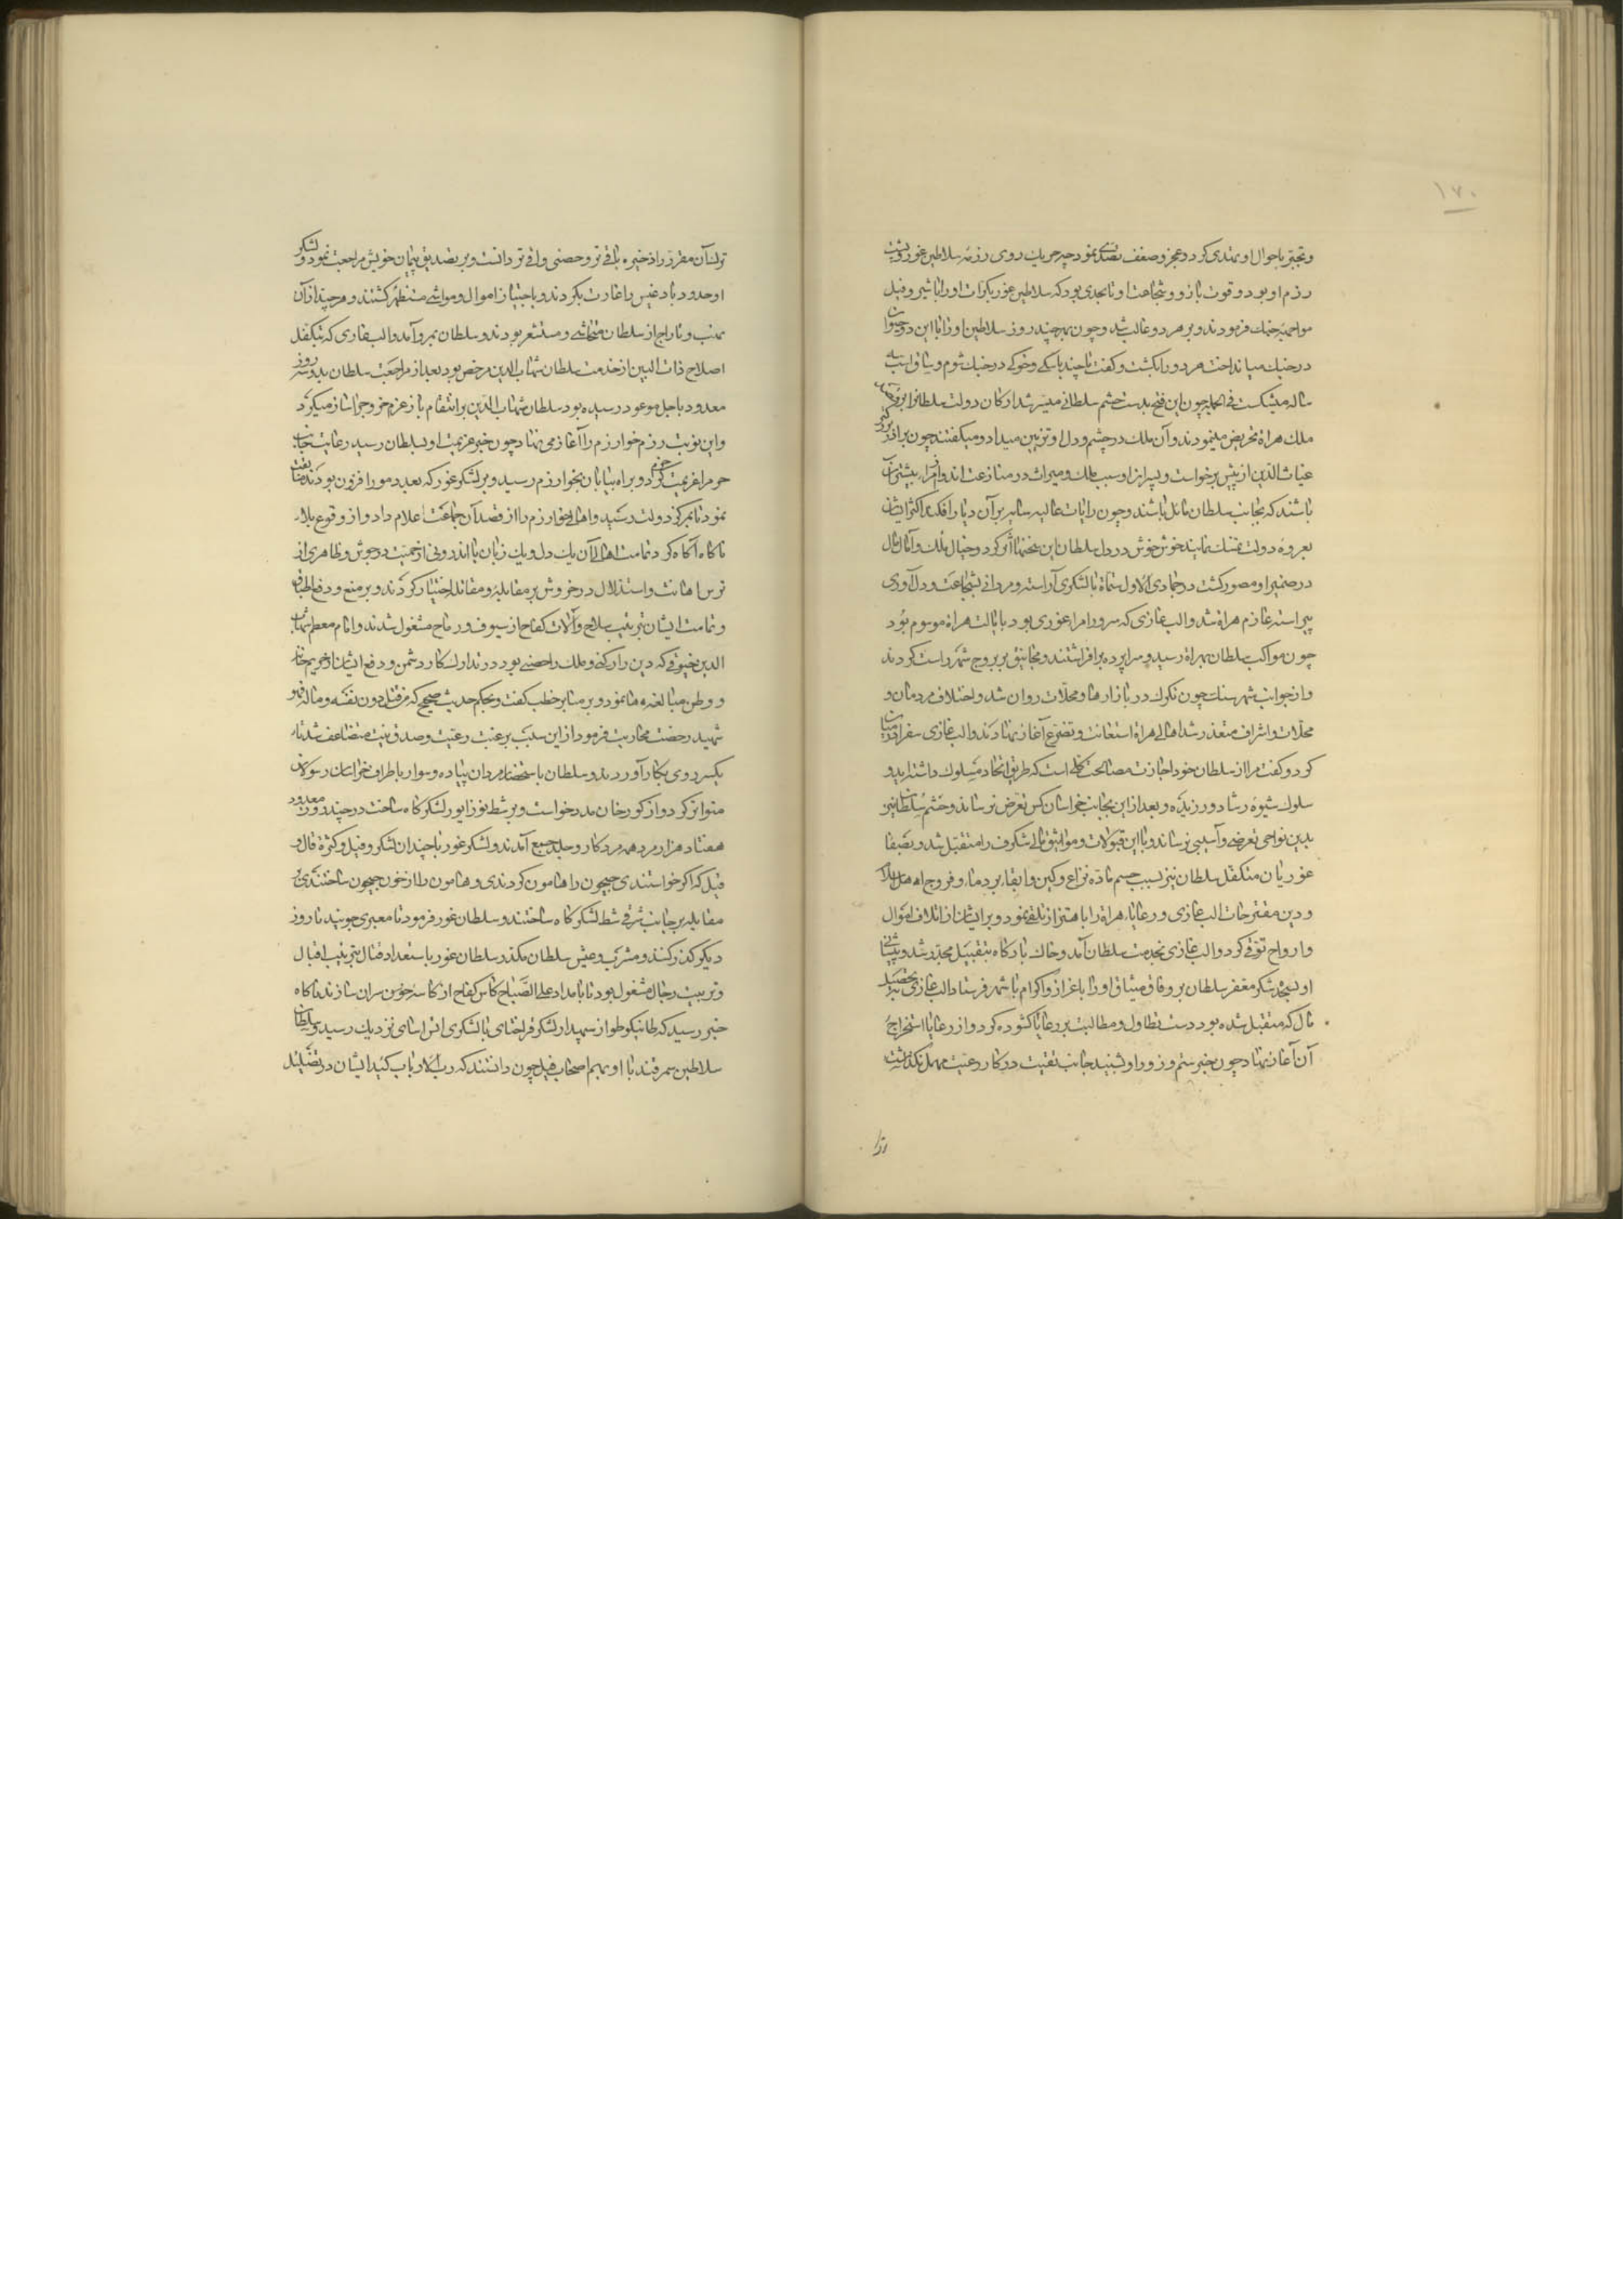 ۱۷۰
رزم او بود و قوت بازو و شجاعت او تا بحدی بود که سلاطین غور بکرات او را با شیر و فیل
مواجهه جنک فرمودند و بر هر دو غالب شد و چون بهر چند روز سلاطین او را با این دو حیوان
در جنک می انداخت هر دو را بکشت و کفت تا چند با سکی و خوکی در جنک شوم و ساق اسب سه
ساله میشکست فی الجمله چون این فتح بدست حشم سلطانی میسر شد ارکان دولت سلطانرا بر
ملک هراة تحریض مینمودند و آن ملک در چشم و دل او تزیین میداد و میکفتند چون برادر بزرکتر
غیاث الدین از پیش برخواست و پسران او سبب ملک و میراث در منازعت اند و امراء بیشتر آن
باشند که بجانب سلطان مایل باشند و چون رایات عالیه سایه بر آن دیار افکند اکثر ایشان
بعروه دولت تمسک نمایند خوش خوش در دل سلطان این سخنها اثر کرد و خیال ملک و آمال مال
در ضمیر او مصور کشت در جمادی الاول ستماة با لشکری آراسته و مردانی بشجاعت و دل آوری
پیراسته عازم هراة شد و الب غازی که سرور امراء غوری بود بایالت هراة موسوم بود
چون مواکب سلطان بهراة رسید و سراپرده برافراشتند و مجانیق بر بروج شهر راست کردند
و از جوانب شهر سنک چون تکرک در بازارها و محلات روان شد و اختلاف مردمان و
محلات و اشراف متعذر شد اهالی هراة استغاثت و تضرع آغاز نهادند و الب غازی سفرا در میان
کرد و کفت مرا از سلطان خود اجازت مصالحت کلی است که طریق اتحاد مسلوک داشته اید و
سلوک شیوه رشاد ورزیده و بعد از این بجانب خراسان کس تعرض نرساند و حشم سلطان نیز
بدین نواحی تعرض و آسیبی نرساند و با این قبولات و مواثیق مالی شکرف را متقبل شد و
غوریان متکفل سلطان نیز بسبب حسم ماده نزاع و کین و ابقاء بر دماء و فروج اهل
و دین مقترحات الب غازی و رعایاء هراة را باهتزاز تلقی نمود و بر ایشان از اتلاف اموال
و ارواح توقی کرد و الب غازی بخدمت سلطان آمد و خاک بارکاه بتقبیل مجدر شد و پیشانی
او بسجده شکر معفر سلطان بر وفاق میثاق او را باعزاز و اکرام با شهر فرستاد الب غازی بتحصیل
مال که متقبل شده بود دست تطاول و مطالبت بر رعایا کشوده کرد و از رعایا استخراج
آن آغاز نهاد چون خبر ستم و زور او بشنید جانب تقیت در کار رعیت مهمل نکذاشت
ترک آن مقرر را ذخیره باقی تر و حصنی واقی تر دانست و بر تصدیق پیمان خویش مراجعت نمود و لشکر
او حدود بادغیس را غارت بکردند و باجتیاز اموال و مواشی مستظهر کشتند و هر چند از آن
نهب و تاراج از سلطان متحاشی و مستشعر بودند و سلطان بمرو آمد و الب غازی که بتکفل
اصلاح ذات البین از خدمت سلطان شهاب الدین مرخص بود بعد از مراجعت سلطان بدو سه روز
معدود باجل موعود رسیده بود سلطان شهاب الدین بر انتقام باز عزم خروج خراسان میکرد
و این نوبت رزم خوارزم را آغاز می نهاد چون خبر عزیمت او بسلطان رسید رعایت جانب
حزم را عزیمت کرد و براه بیابان بخوارزم رسید و بر لشکر غور که بعدد مور افزون بودند سبقت
نمود تا بمرکز دولت رسید و اهالی خوارزم را از قصد آن جماعت اعلام داد و از وقوع بلاء
ناکاه آکاه کرد تمامت اهالی آن یک دل و یک زبان با اندرونی از حمیت در جوش و ظاهری از
ترس اهانت و استذلال در خروش بر مقابله و مقاتله اختیار کردند و بر منع و دفع اطباق
و تمامت ایشان بترتیب سلاح و آلات کفاح از سیوف و رماح مشغول شدند و امام معظم شهاب
الدین خیوقی که دین را رکنی و ملک را حصنی بود در تدارک کار دشمن و دفع ایشان از حریم خانه
و وطن مبالغه ها نمود و بر منابر خطب کفت و بحکم حدیث صحیح که من قتل دون نفسه و ماله فهو
شهید رخصت محاربت فرمود از این سبب بر عتبت رغبت و صدق نیت متضاعف شد تا
یکسر روی بکار آوردند و سلطان باستحضار مردان پیاده و سوار باطراف خراسان رسولان
متواتر کرد و از کورخان مدد خواست و بر شط نوزاپور لشکرکاه ساخت در چند روز معدود
هفتاد هزار مرد همه مرد کار و جلد جمع آمدند و لشکر غور با چندان لشکر و فیل و کثرة قال و
قیل که اکر خواستندی جیحون را هامون کردندی و هامون را از خون جیحون ساختندی بر
مقابله بر جانب شرقی شط لشکرکاه ساختند و سلطان غور فرمود تا معبری جویند تا روز
دیکر کذر کنند و مشرب عیش سلطان مکدر سلطان غور باستعداد قتال بترتیب افیال
و تربیت رجال مشغول بود تا بامداد علی الصباح کاس کفاح از کاسه خوس سران سازند ناکاه
خبر رسید که طاینکو طراز سپهدار لشکر قراختای با لشکری آتش آسای نزدیک رسید و سلطان
سلاطین سمرقند با او بهم اصحاب فیل چون دانستند که رب الارباب کید ایشان در تضلیل